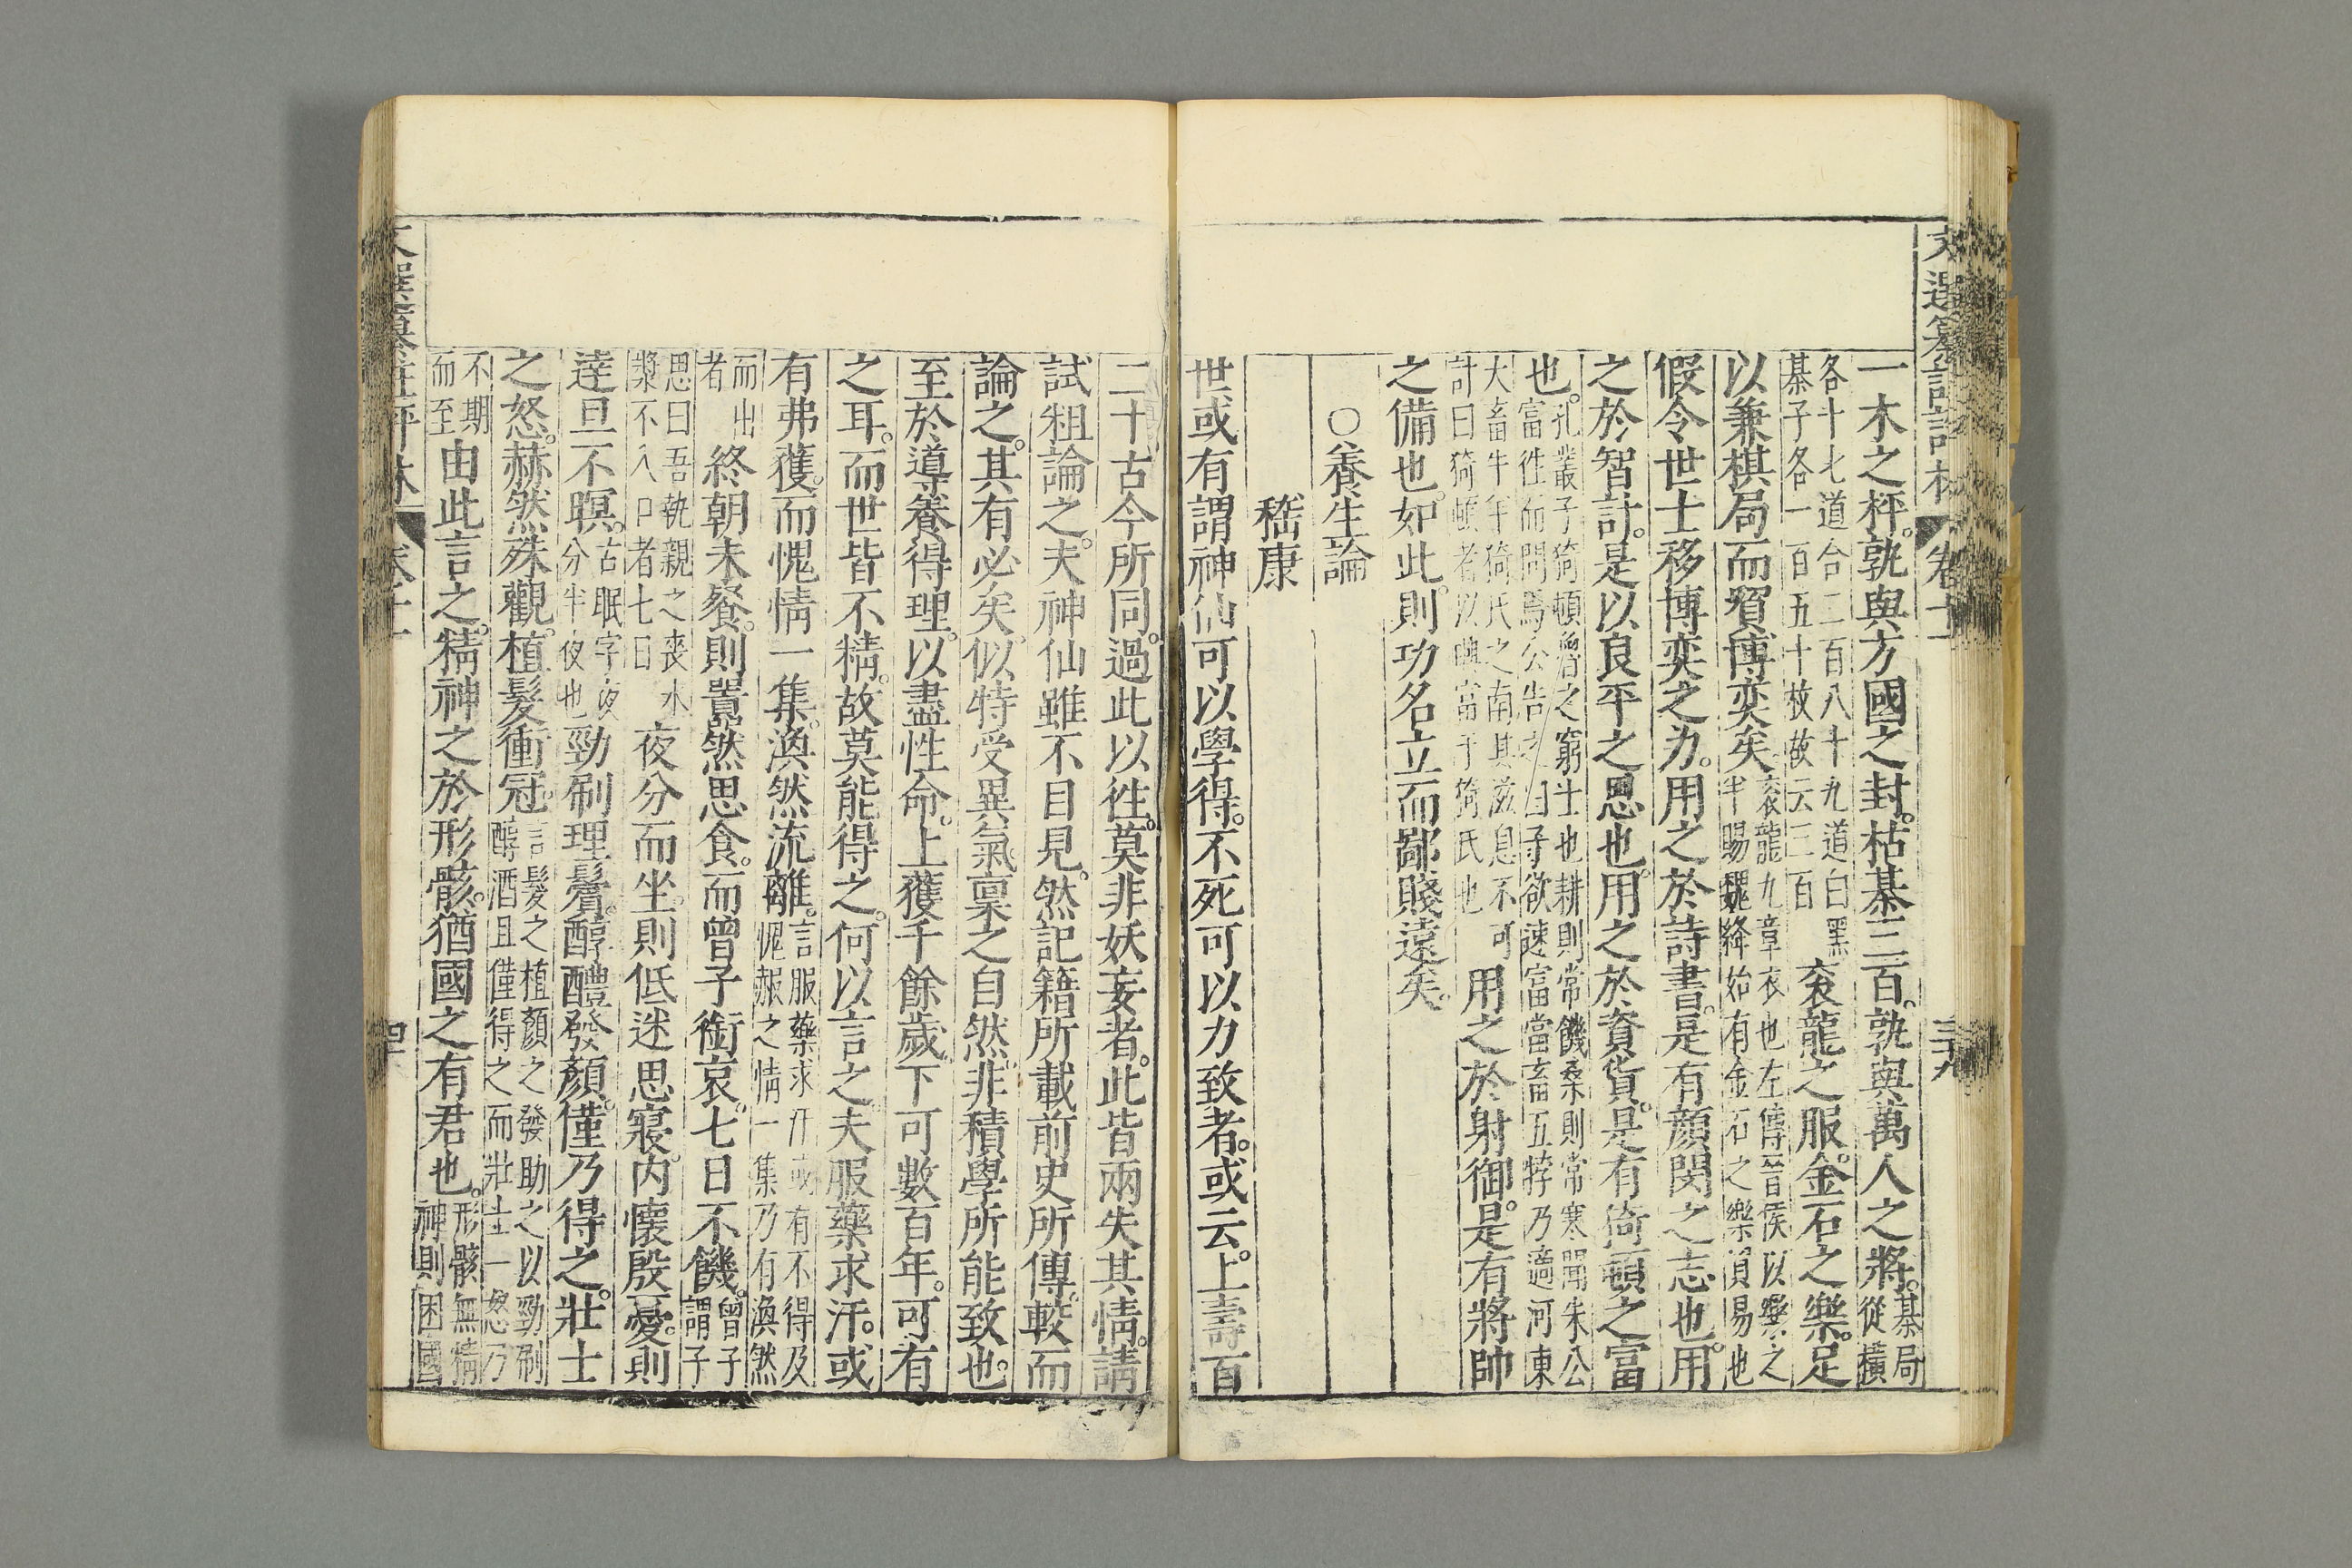 文選纂註評林 卷十一 三十九
一木之枰。孰與方國之封。枯棊三百。孰與萬人之將。棊局從橫
各十七道合二百八十九道白黑棊子各一百五十枚故云三百 袞龍之服。金石之樂。足
以兼棋局而貿博奕矣 袞龍九章衣也左傳晉侯以樂之半賜魏絳始有金石之樂貿易也
假令世士移博奕之力。用之於詩書。是有顏閔之志也。用
之於智計。是以良平之思也。用之於資貨。是有猗頓之富
也。孔叢子猗頓魯之窮士也耕則常饑桑則常寒聞朱公富往而問焉公告之曰子欲速富當畜五牸乃適河東
大畜牛羊猗氏之南其滋息不可計曰猗頓者以興富于猗氏也 用之於射御。是有將帥
之備也。如此。則功名立而鄙賤遠矣。
○養生論
嵇康
世或有謂神仙可以學得。不死可以力致者。或云。上壽百
二十古今所同。過此以往。莫非妖妄者。此皆兩失其情。請
試粗論之。夫神仙雖不目見。然記籍所載前史所傳。較而
論之。其有必矣。似特受異氣稟之自然。非積學所能致也。
至於導養得理。以盡性命。上獲千餘歲。下可數百年。可有
之耳。而世皆不精。故莫能得之。何以言之。夫服藥求汗。或
有弗獲。而愧情一集。渙然流離。言服藥求汗或有不得及怩赧之情一集乃有渙然
而出者 終朝未餐。則囂然思食。而曾子銜哀。七日不饑。曾子謂子
思曰吾執親之喪水漿不入口者七日 夜分而坐。則低迷思寢。內懷殷憂。則
達旦不瞑。古眠字夜分半夜也 勁刷理鬢。醇醴發顏。僅乃得之。壯士
之怒。赫然殊觀。植髮衝冠。言髮之植顏之發助之以勁刷醇酒且僅得之而壯士一怒乃
不期而至 由此言之。精神之於形骸。猶國之有君也。形骸無精神則困國
文選纂註評林 卷十一 四十